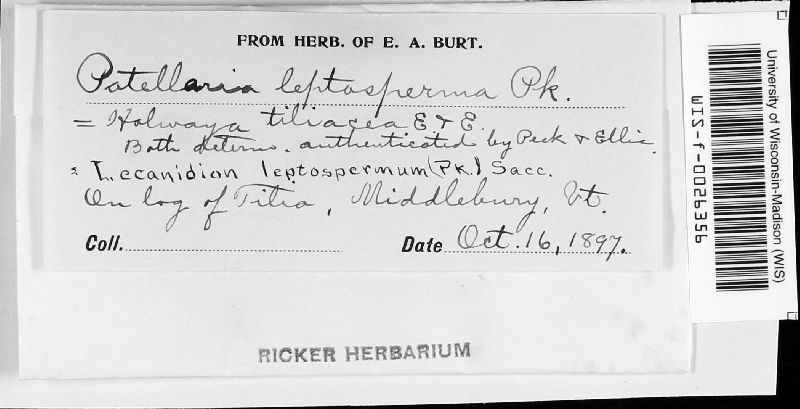 FROM HERB. OF E. A. BURT.
Patellaria leptosperma Pk.
= Holwaya tiliacea E & E.
Both determs. authenticated by Peck & Ellis.
= Lecanidion leptospermum (Pk.) Sacc.
On log of Tilia, Middlebury, Vt.
Coll. Date Oct. 16, 1897.
RICKER HERBARIUM
University of Wisconsin-Madison (WIS)
WIS-f-0026356